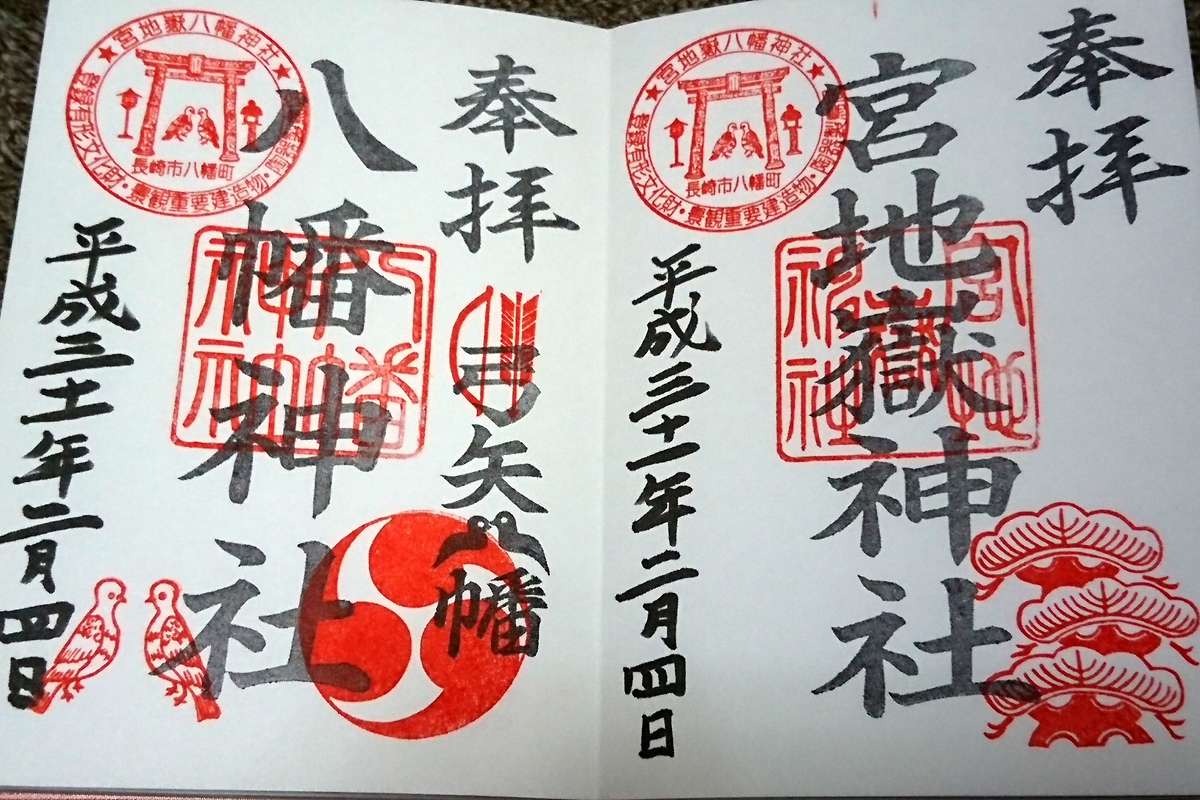 奉拝
宮地嶽神社
宮地嶽神社
宮地嶽八幡神社
登録有形文化財・景観重要建造物・
長崎市八幡町
平成三十一年二月四日
奉拝
弓矢八幡
八幡神社
八幡神社
宮地嶽八幡神社
登録有形文化財・景観重要建造物・
長崎市八幡町
平成三十一年二月四日